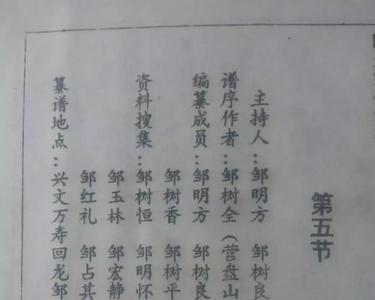 第五节
主持人：邹明方 邹树良
谱序作者：邹树全（营盘山
编纂成员：邹明方 邹树良
邹树香 邹树平
资料搜集：邹树恒 邹明怀
邹玉林 邹宏静
邹红礼 邹占其
纂谱地点：兴文万寿回龙邹